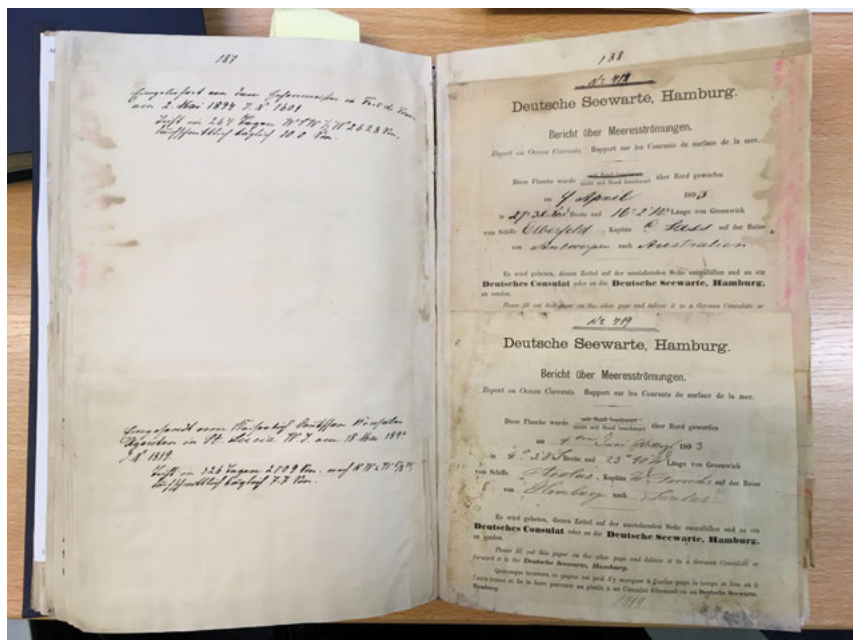 187
Eingeliefert von dem Hafenmeister in Fort de
am 2. Mai 1894 J. № 1609
Trift in 267 Tagen W 2628 Sm,
durchschnittlich täglich 10 0 Sm.
Eingesandt vom Kaiserlich Deutschen Konsular
Agenten in St. Lucia W. I. am 18 Mai 189
J. № 1819.
Trift in 326 Tagen 2509 Sm. nach
durchschnittlich täglich 7.7 Sm.
138
№ 418
Deutsche Seewarte, Hamburg.
Bericht über Meeresströmungen.
Report on Ocean Currents Rapport sur les Courants de surface de la mer.
Diese Flasche wurde mit Sand beschwert
nicht mit Sand beschwert über Bord geworfen
am 9 April 1893
in 27° Breite und 16° 2' Länge von Greenwich
vom Schiffe Elberfeld, Kapitän C. Sass auf der Reise
von Antwerpen nach Australien
Es wird gebeten, diesen Zettel auf der umstehenden Seite auszufüllen und an ein
Deutsches Consulat oder an die Deutsche Seewarte, Hamburg,
zu senden.
Please fill out this paper on the other page and deliver it to a German Consulate or
№ 419
Deutsche Seewarte, Hamburg.
Bericht über Meeresströmungen.
Report on Ocean Currents Rapport sur les Courants de surface de la mer.
Diese Flasche wurde mit Sand beschwert
nicht mit Sand beschwert über Bord geworfen
am 4 Juni 1893
in 4° Breite und 23° Länge von Greenwich
vom Schiffe , Kapitän auf der Reise
von Hamburg nach Santos
Es wird gebeten, diesen Zettel auf der umstehenden Seite auszufüllen und an ein
Deutsches Consulat oder an die Deutsche Seewarte, Hamburg,
zu senden.
Please fill out this paper on the other page and deliver it to a German Consulate or
forward it to the Deutsche Seewarte, Hamburg.
Quiconque trouvera ce papier est prié d'y marquer à l'autre page le temps et lieu où il
l'aura trouvé et de le faire parvenir au plutôt à un Consulat Allemand ou au Deutsche Seewarte,
Hamburg.
1819